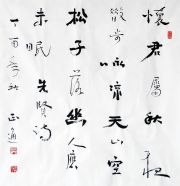 懷君屬秋夜
散步詠涼天山空
松子落幽人應
未眠 先賢詩
丁酉年秋 正通